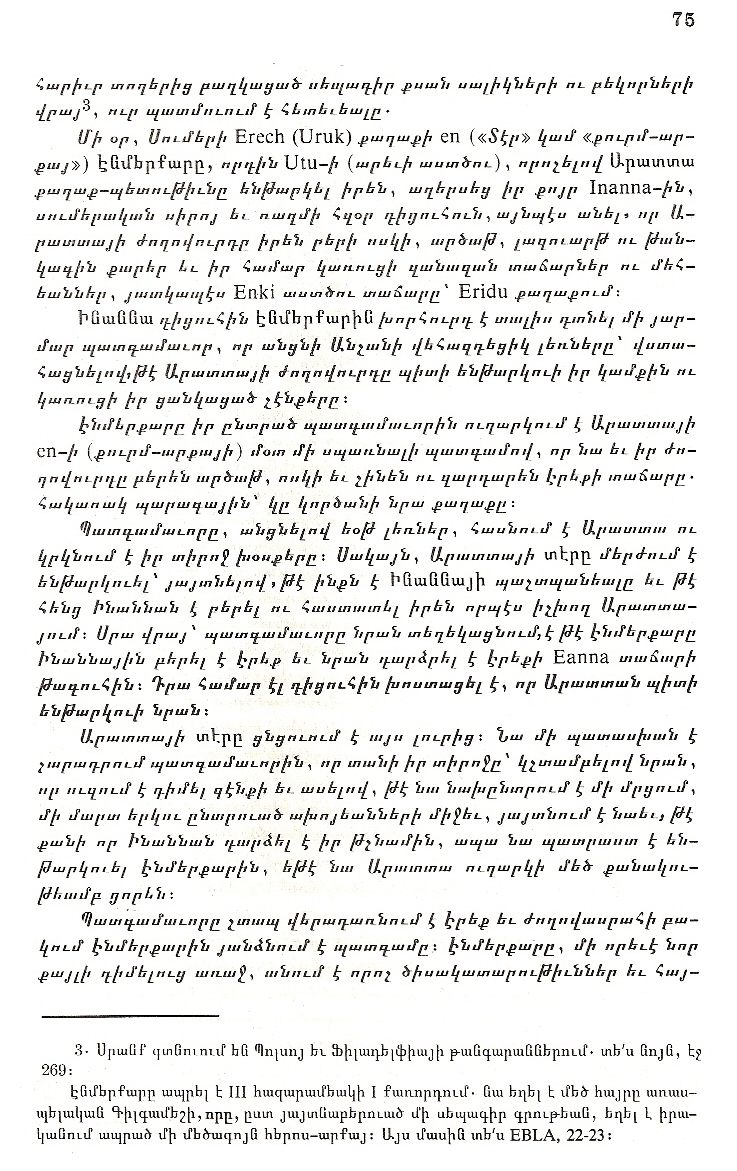 75
հարիւր տողերից բաղկացած սեպագիր քսան սալիկների ու բեկորների
վրայ3, ուր պատմուում է հետեւեալը.
Մի օր, Սումերի Erech (Uruk) քաղաքի en («Տէր» կամ «քուրմ-ար-
քայ») էնմերքարը, որդին Utu-ի (արեւի աստծու), որոշելով Արատտա
քաղաք-պետութիւնը ենթարկել իրեն, աղերսեց իր քոյր Inanna-ին,
սումերական սիրոյ եւ ռազմի հզօր դիցուհուն, այնպէս անել, որ Ա-
րատտայի ժողովուրդը իրեն բերի ոսկի, արծաթ, լազուարթ ու թան-
կագին քարեր եւ իր համար կառուցի զանազան տաճարներ ու մեհ-
եաններ, յատկապէս Enki աստծու տաճարը՝ Eridu քաղաքում:
Ինաննա դիցուհին էնմերքարին խորհուրդ է տալիս գտնել մի յար-
մար պատգամաւոր, որ անցնի Անշանի վեհազդեցիկ լեռները՝ վստա-
հացնելով, թէ Արատտայի ժողովուրդը պիտի ենթարկուի իր կամքին ու
կառուցի իր ցանկացած շէնքերը:
էնմերքարը իր ընտրած պատգամաւորին ուղարկում է Արատտայի
en-ի (քուրմ-արքայի) մօտ մի սպառնալի պատգամով, որ նա եւ իր ժո-
ղովուրդը բերեն արծաթ, ոսկի եւ շինեն ու զարդարեն էրեքի տաճարը.
Հակառակ պարագային՝ կը կործանի նրա քաղաքը:
Պատգամաւորը, անցնելով եօթ լեռներ, հասնում է Արատտա ու
կրկնում է իր տիրոջ խօսքերը: Սակայն, Արատտայի տէրը մերժում է
ենթարկուել՝ յայտնելով, թէ ինքն է Ինաննայի պաշտպանեալը եւ թէ
հենց Ինաննան է բերել ու հաստատել իրեն որպէս իշխող Արատտա-
յում: Սրա վրայ՝ պատգամաւորը նրան տեղեկացնում, է թէ էնմերքարը
Ինաննային բերել է էրեք եւ նրան դարձրել է էրեքի Eanna տաճարի
թագուհին: Դրա համար էլ դիցուհին խոստացել է, որ Արատտան պիտի
ենթարկուի նրան:
Արատտայի տէրը ցնցուում է այս լուրից: Նա մի պատասխան է
շարադրում պատգամաւորին, որ տանի իր տիրոջը՝ կշտամբելով նրան,
որ ուզում է դիմել զէնքի եւ ասելով, թէ նա նախընտրում է մի մրցում,
մի մարտ երկու ընտրուած ախոյեանների միջեւ, յայտնում է նաեւ, թէ
քանի որ Ինաննան դարձել է իր թշնամին, ապա նա պատրաստ է են-
թարկուել էնմերքարին, եթէ նա Արատտա ուղարկի մեծ քանակու-
թեամբ ցորեն:
Պատգամաւորը շտապ վերադառնում է էրեք եւ ժողովասրահի բա-
կում էնմերքարին յանձնում է պատգամը: էնմերքարը, մի որեւէ նոր
քայլի դիմելուց առաջ, անում է որոշ ծիսակատարութիւններ եւ հայ-
3. Սրանք գտնուում են Պոլսոյ եւ Ֆիլադելֆիայի թանգարաններում. տե՛ս նոյն, էջ
269:
էնմերքարը ապրել է III հազարամեակի I քառորդում. նա եղել է մեծ հայրը առաս-
պելական Գիլգամեշի, որը, ըստ յայտնաբերուած մի սեպագիր գրութեան, եղել է իրա-
կանում ապրած մի մեծագոյն հերոս-արքայ: Այս մասին տե՛ս EBLA, 22-23: